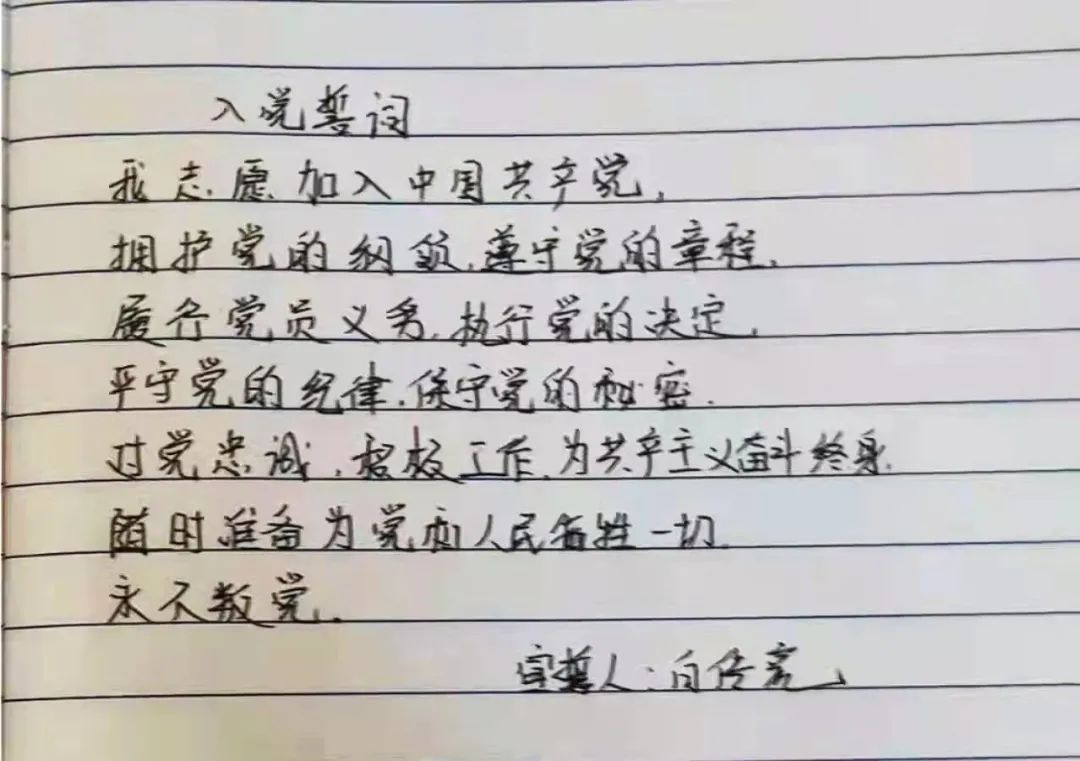 入党誓词
我志愿加入中国共产党,
拥护党的纲领,遵守党的章程,
履行党员义务,执行党的决定,
严守党的纪律,保守党的秘密.
对党忠诚,积极工作,为共产主义奋斗终身,
随时准备为党和人民牺牲一切,
永不叛党.
宣誓人:白传亮